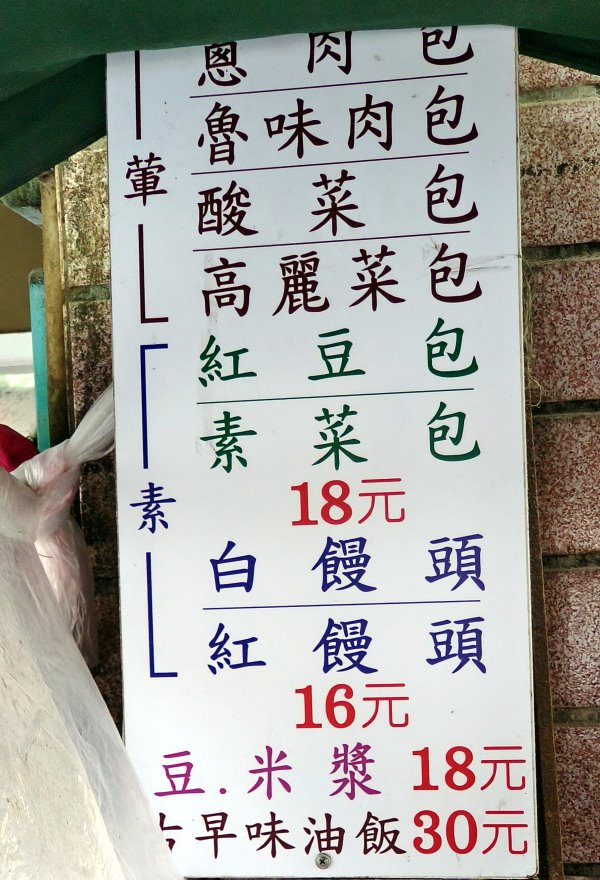 蔥肉包
魯味肉包
酸菜包
高麗菜包
葷
紅豆包
素菜包
18元
素
白饅頭
紅饅頭
16元
豆.米漿18元
古早味油飯30元